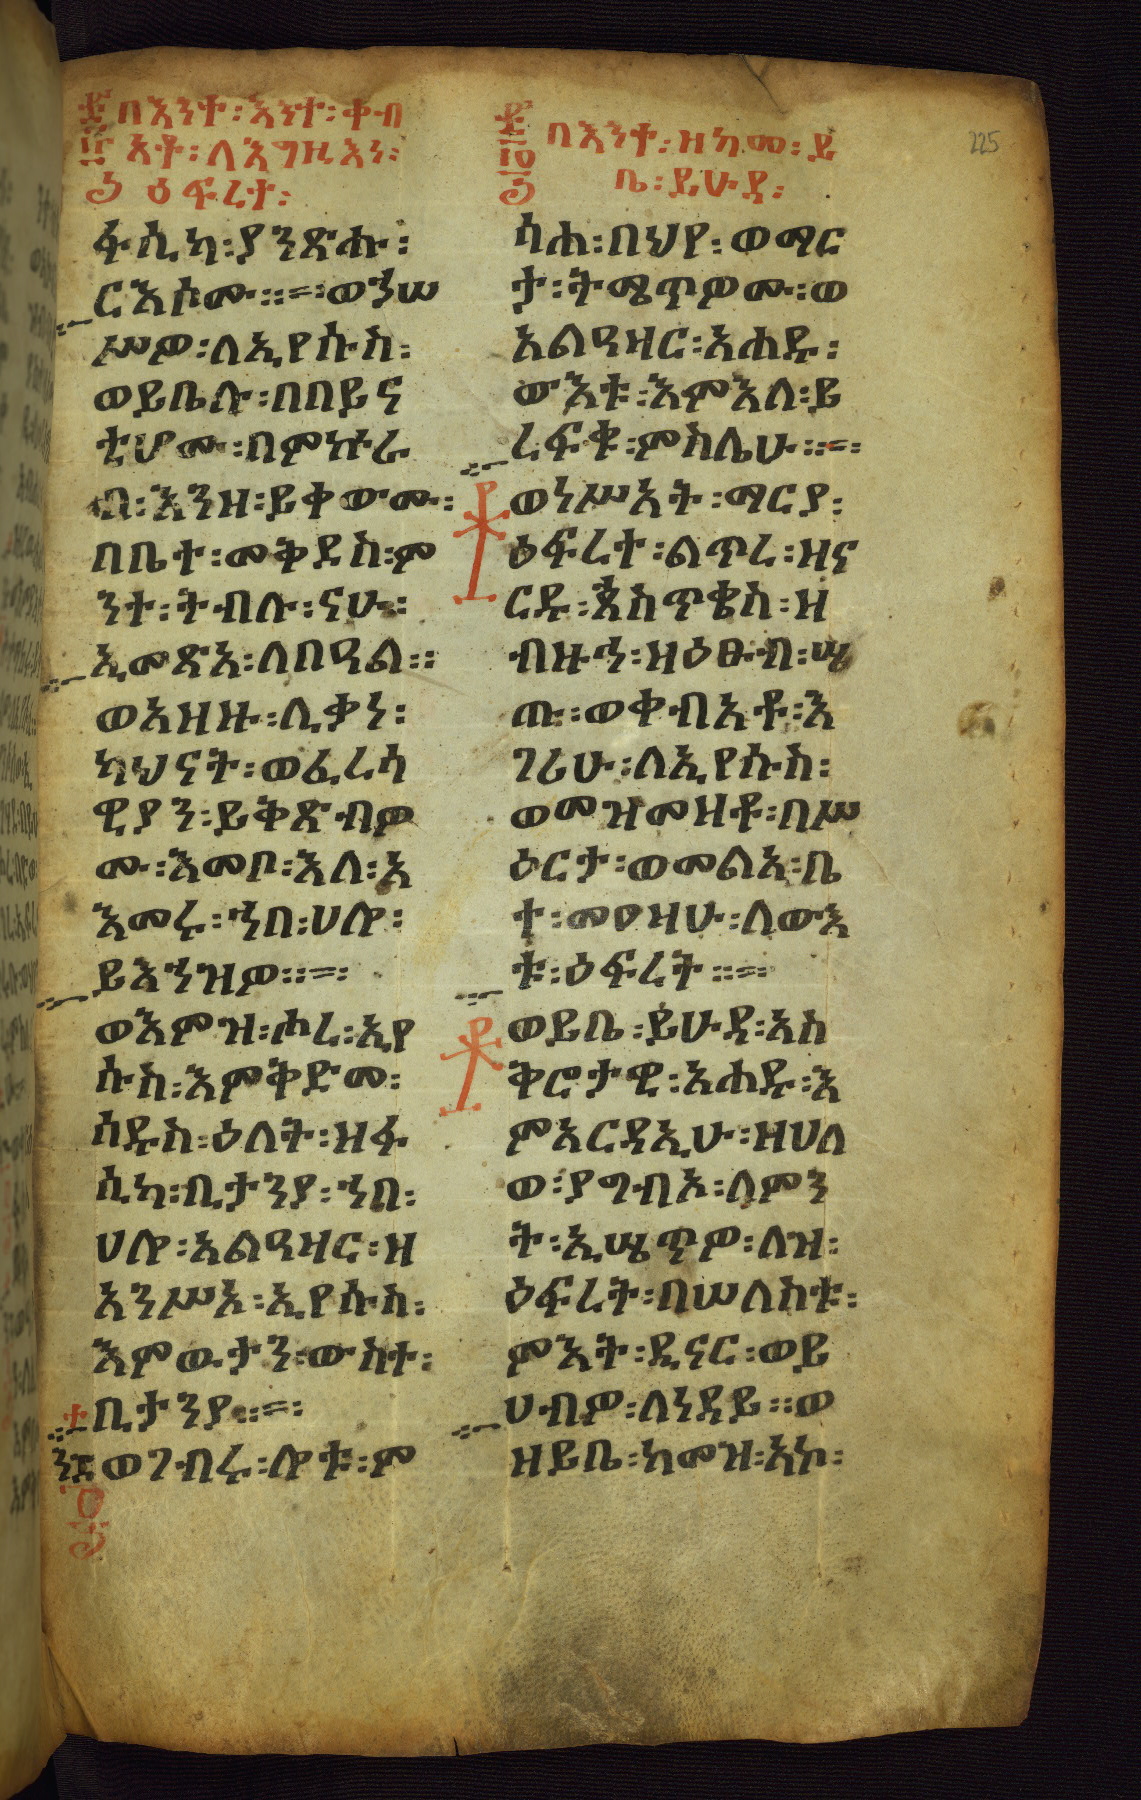 በእንተ፡እንተ፡ቀብ
አቶ፡ለእግዚእነ፡
ዕፍረተ፡
ፋሲካ፡ያንጽሑ፡
ርእሶሙ።=፡ወኀሠ
ሥዎ፡ለኢየሱስ፡
ወይቤሉ፡በበይና
ቲሆሙ፡በምኵራ
ብ፡እንዘ፡ይቀውሙ፡
በቤተ፡መቅደስ፡ም
ንተ፡ትብሉ፡ናሁ፡
ኢመጽአ፡ለበዓል።
ወአዘዙ፡ሊቃነ፡
ካህናት፡ወፈሪሳ
ዊያን፡ይቅጽብዎ
ሙ፡እመቦ፡እለ፡አ
እመሩ፡ኀበ፡ሀሎ፡
ይእኀዝዎ።=፡
ወእምዝ፡ሖረ፡ኢየ
ሱስ፡እምቅድመ፡
ሰዱስ፡ዕለት፡ዝፋ
ሲካ፡ቢታንያ፡ኀበ፡
ሀሎ፡አልዓዛር፡ዘ
አንሥአ፡ኢየሱስ፡
እምውታን፡ውስተ፡
ቢታንያ።=፡
ወገብሩ፡ሎቱ፡ም
በእንተ፡ዘካመ፡ይ
ቤ፡ይሁዳ፡
ሳሐ፡በህየ፡ወማር
ታ፡ትሜጥዎሙ፡ወ
አልዓዛር፡አሐዱ፡
ውእቱ፡እምእለ፡ይ
ረፍቁ፡ምስሌሁ።=፡
ወነሥአት፡ማርያ፡
ዕፍረተ፡ልጥረ፡ዘና
ርዱ፡ጰስጥቄስ፡ዘ
ብዙኀ፡ዘዕፁብ፡ሤ
ጡ፡ወቀብአቶ፡እ
ገሪሁ፡ለኢየሱስ፡
ወመዝመዘቶ፡በሥ
ዕርታ፡ወመልአ፡ቤ
ተ፡መዐዛሁ፡ለውእ
ቱ፡ዕፍረት።=
ወይቤ፡ይሁዳ፡አስ
ቅሮታዊ፡አሐዱ፡እ
ምአርዳኢሁ፡ዘሀለ
ወ፡ያግብኦ፡ለምን
ት፡ኢሤጥዎ፡ለዝ፡
ዕፍረት፡በሠለስቱ፡
ምእት፡ዲናር፡ወይ
ሀብዎ፡ለነዳይ።ወ
ዘይቤ፡ከመዝ፡አኮ፡
225